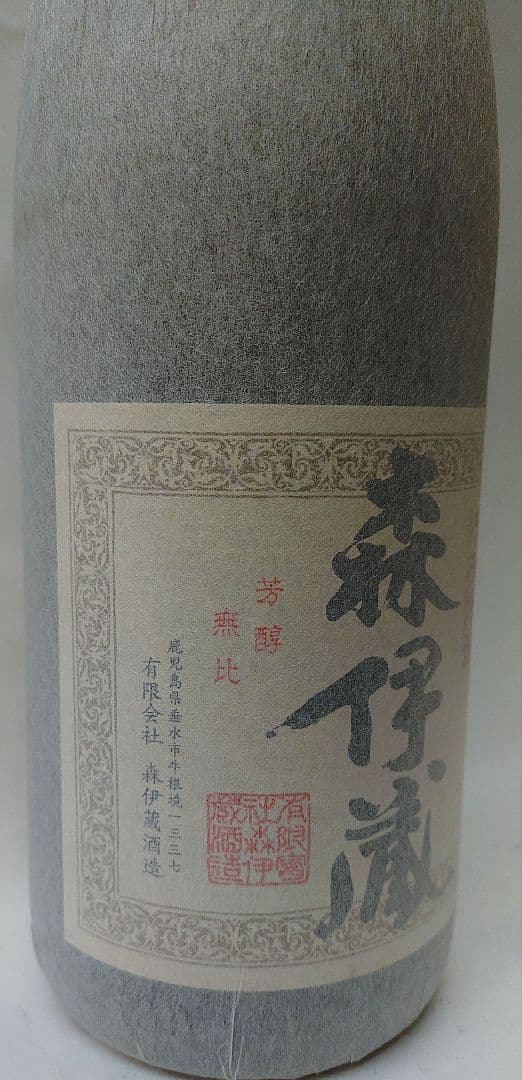 森伊蔵
芳醇
無比
鹿児島県垂水市牛根境一三三七
有限会社 森伊蔵酒造
有限會
社森伊
蔵酒造